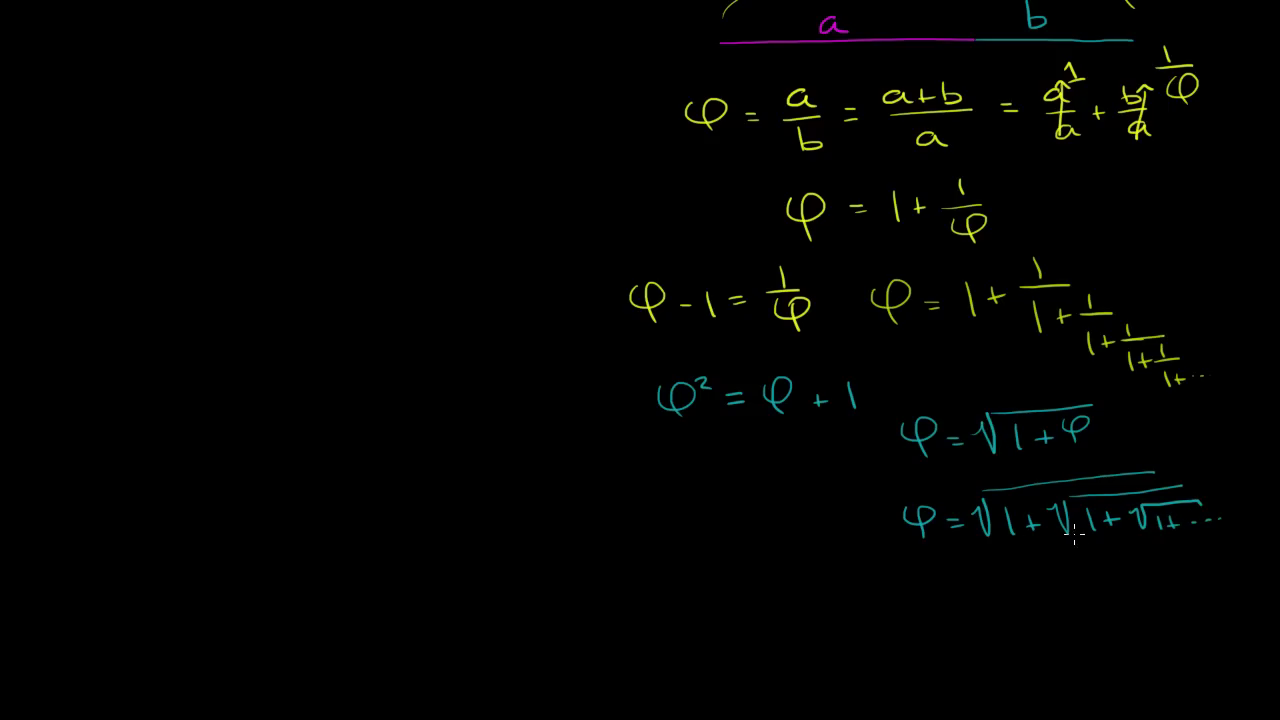 a b
φ = a/b = (a+b)/a = a/a + b/a 1 1/φ
φ = 1 + 1/φ
φ - 1 = 1/φ φ = 1 + 1/(1 + 1/(1 + 1/(1 + 1/(1+...
φ² = φ + 1
φ = √(1 + φ)
φ = √(1 + √(1 + √(1+ ...